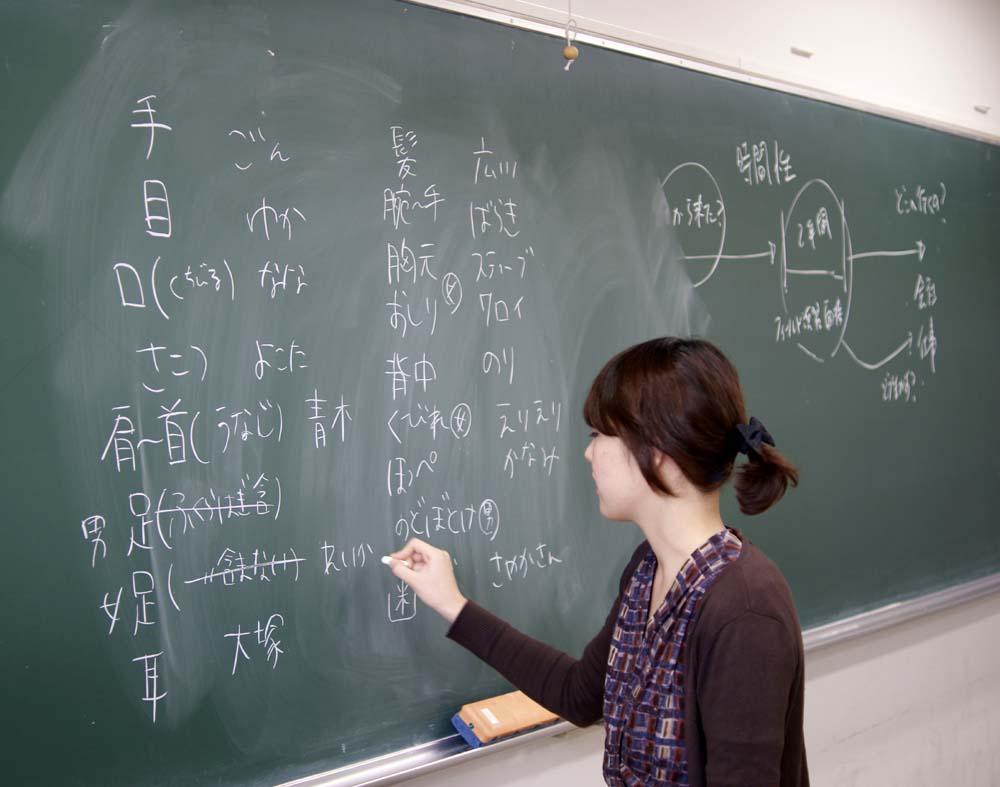 手 ごん
目 ゆか
口(くちびる) ななな
さこつ よこた
肩〜首(うなじ) 青木
男 足(ふくらはぎ含)
女 足( 含まない) れいか
耳 大塚
髪 広川
腕〜手 ばらき
胸元 スティーブ
おしり 女 クロイ
背中 のり
くびれ 女 えりえり
ほっぺ かなみ
のどぼとけ 男
歯 さやかさん
時間性
から来た?
2年間
どこへ行くの?
会社
仕事